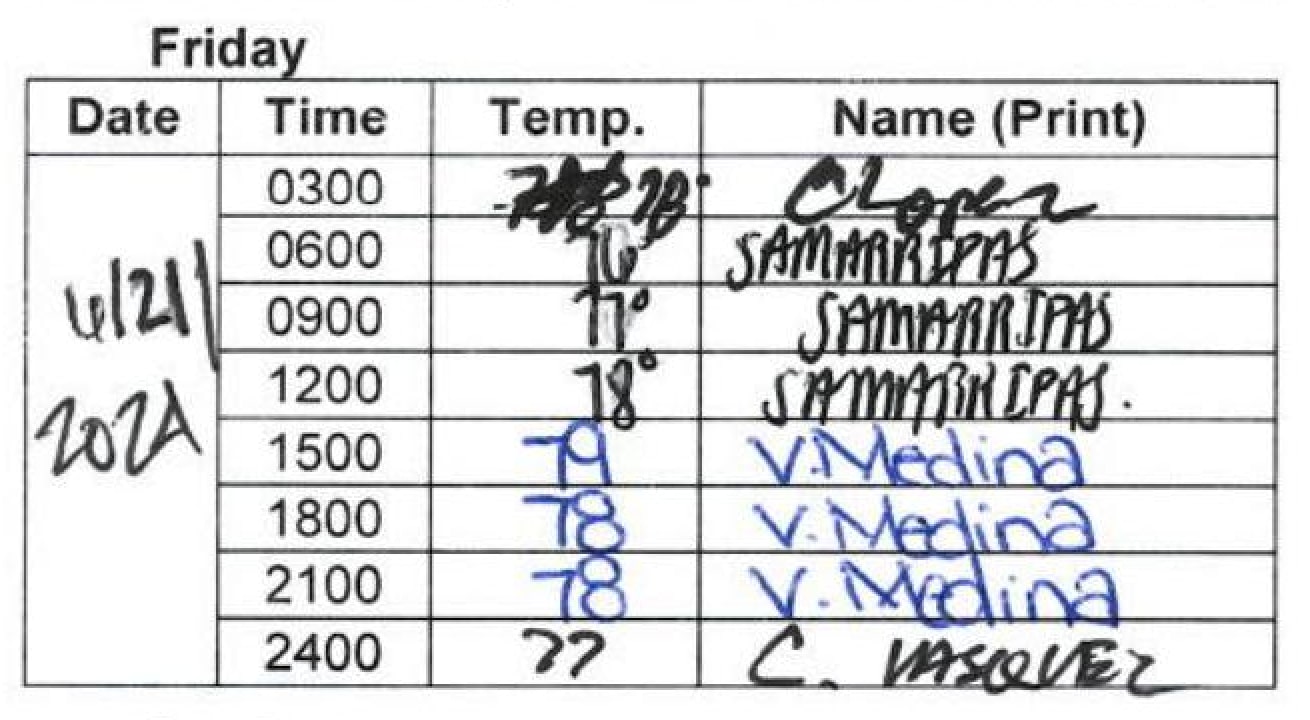 Friday
Date Time Temp. Name (Print)
0300 78° C Lopez
0600 76 SAMARRIPAS
0900 77° SAMARRIPAS
6/21/
1200 78° SAMARRIPAS.
2024
1500 79 V. Medina
1800 78 V. Medina
2100 78 V. Medina
2400 77 C. VASQUEZ